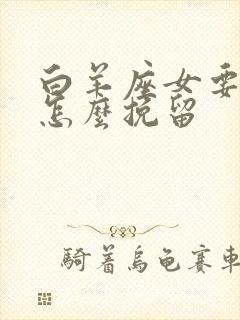 白羊座女要
怎麼挽留
騎着烏龜賽車